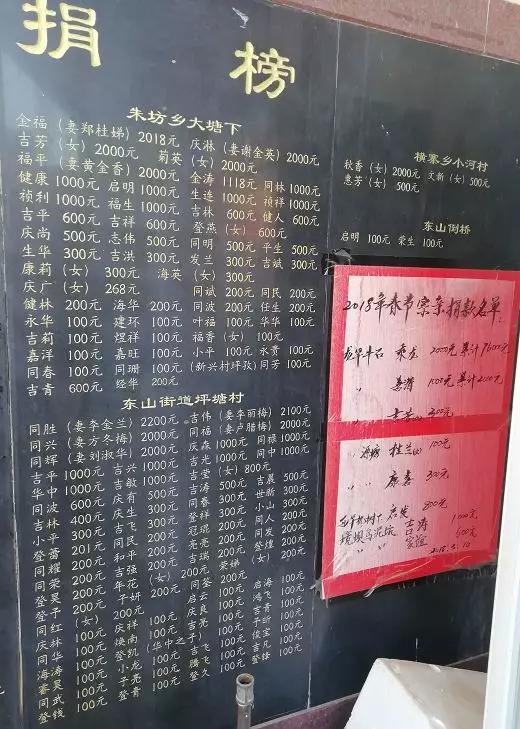 捐 榜
朱坊乡大塘下
金福（妻郑桂娣）2018元 庆淋（妻谢金英）2000元
吉芳（女）2000元 菊英（女）2000元
福平（妻黄金香）2000元 金涛 1118元 同林 1000元
健康 1000元 启明 1000元 生连 1000元 祯祥 1000元
祯利 1000元 福生 1000元 吉林 600元 健人 600元
吉平 600元 吉祥 600元 登燕（女）600元
庆尚 500元 志伟 500元 同明 500元 平生 500元
生华 300元 吉洪 300元 发兰 300元 吉斌 300元
康莉（女）300元 海英（女）300元
庆广（女）268元 同斌 200元 同民 200元
健林 200元 海华 200元 同波 200元 任生 200元
永华 100元 建环 100元 叶福 100元 华华 100元
吉莉 100元 煜祥 100元 福香（女）100元
嘉洋 100元 嘉旺 100元 小平 100元 永贵 100元
同春 100元 同珊 100元（新兴村坪孜）同芳 100元
吉青 600元 经华 200元
东山街道坪塘村
同胜（妻李金兰）2200元 吉伟（妻李丽梅）2100元
同兴（妻方冬梅）2000元 同福（妻卢腊梅）2000元
同辉（妻刘淑华）2000元 庆森 1000元 同禄 1000元
吉平 1000元 吉兴 1000元 吉光 1000元 同中 1000元
华中 1000元 吉敏 1000元 吉莹（女）800元
同波 600元 庆有 500元 吉涛 500元 吉晨 500元
吉林 400元 庆生 300元 同春 300元 世新 300元
小平 300元 吉飞 300元 登祥 300元 小山 300元
登蕾 201元 同民 200元 冠琨 200元 同人 200元
同耀 200元 和平 200元 亮亮 200元 同发 200元
同荣 200元 吉强 200元 吉瑞 200元 登煌 200元
登昊 200元 年花（女）200元 荣娣（女）200元
登子（女）200元 子妍 200元 同荃 200元 启海 100元
同红（女）200元 启云 100元 鸿飞 100元
庆林 100元 庆祥 100元 庆良 100元 吉青 100元
同华 100元 焕南 100元 吉亮 100元 于昕 100元
海涛 100元 登凯（华中之子）100元 俊宝 100元
睿昊 100元 小龙 100元 吉飞 100元 吉凡 100元
同武 100元 子亮 100元 腾飞 100元 登锋 100元
登钱 100元 登青 100元 登久 100元
横寨乡小河村
秋香（女）2000元 文新（女）500元
惠芳（女）500元
东山倒桥
启明 100元 荣生 100元
2018年春节宗亲捐款名单：
龙华牛石 乘龙 2000元 累计 16000元
〃 1000元 累计 2000元
300元
〃 海塘 桂兰(女) 100元
〃 〃 康喜 300元
800元
吉涛 1000元
600元
2018.3.10